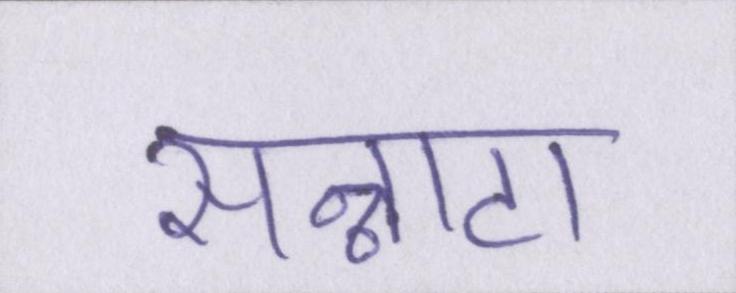 सन्नाटा